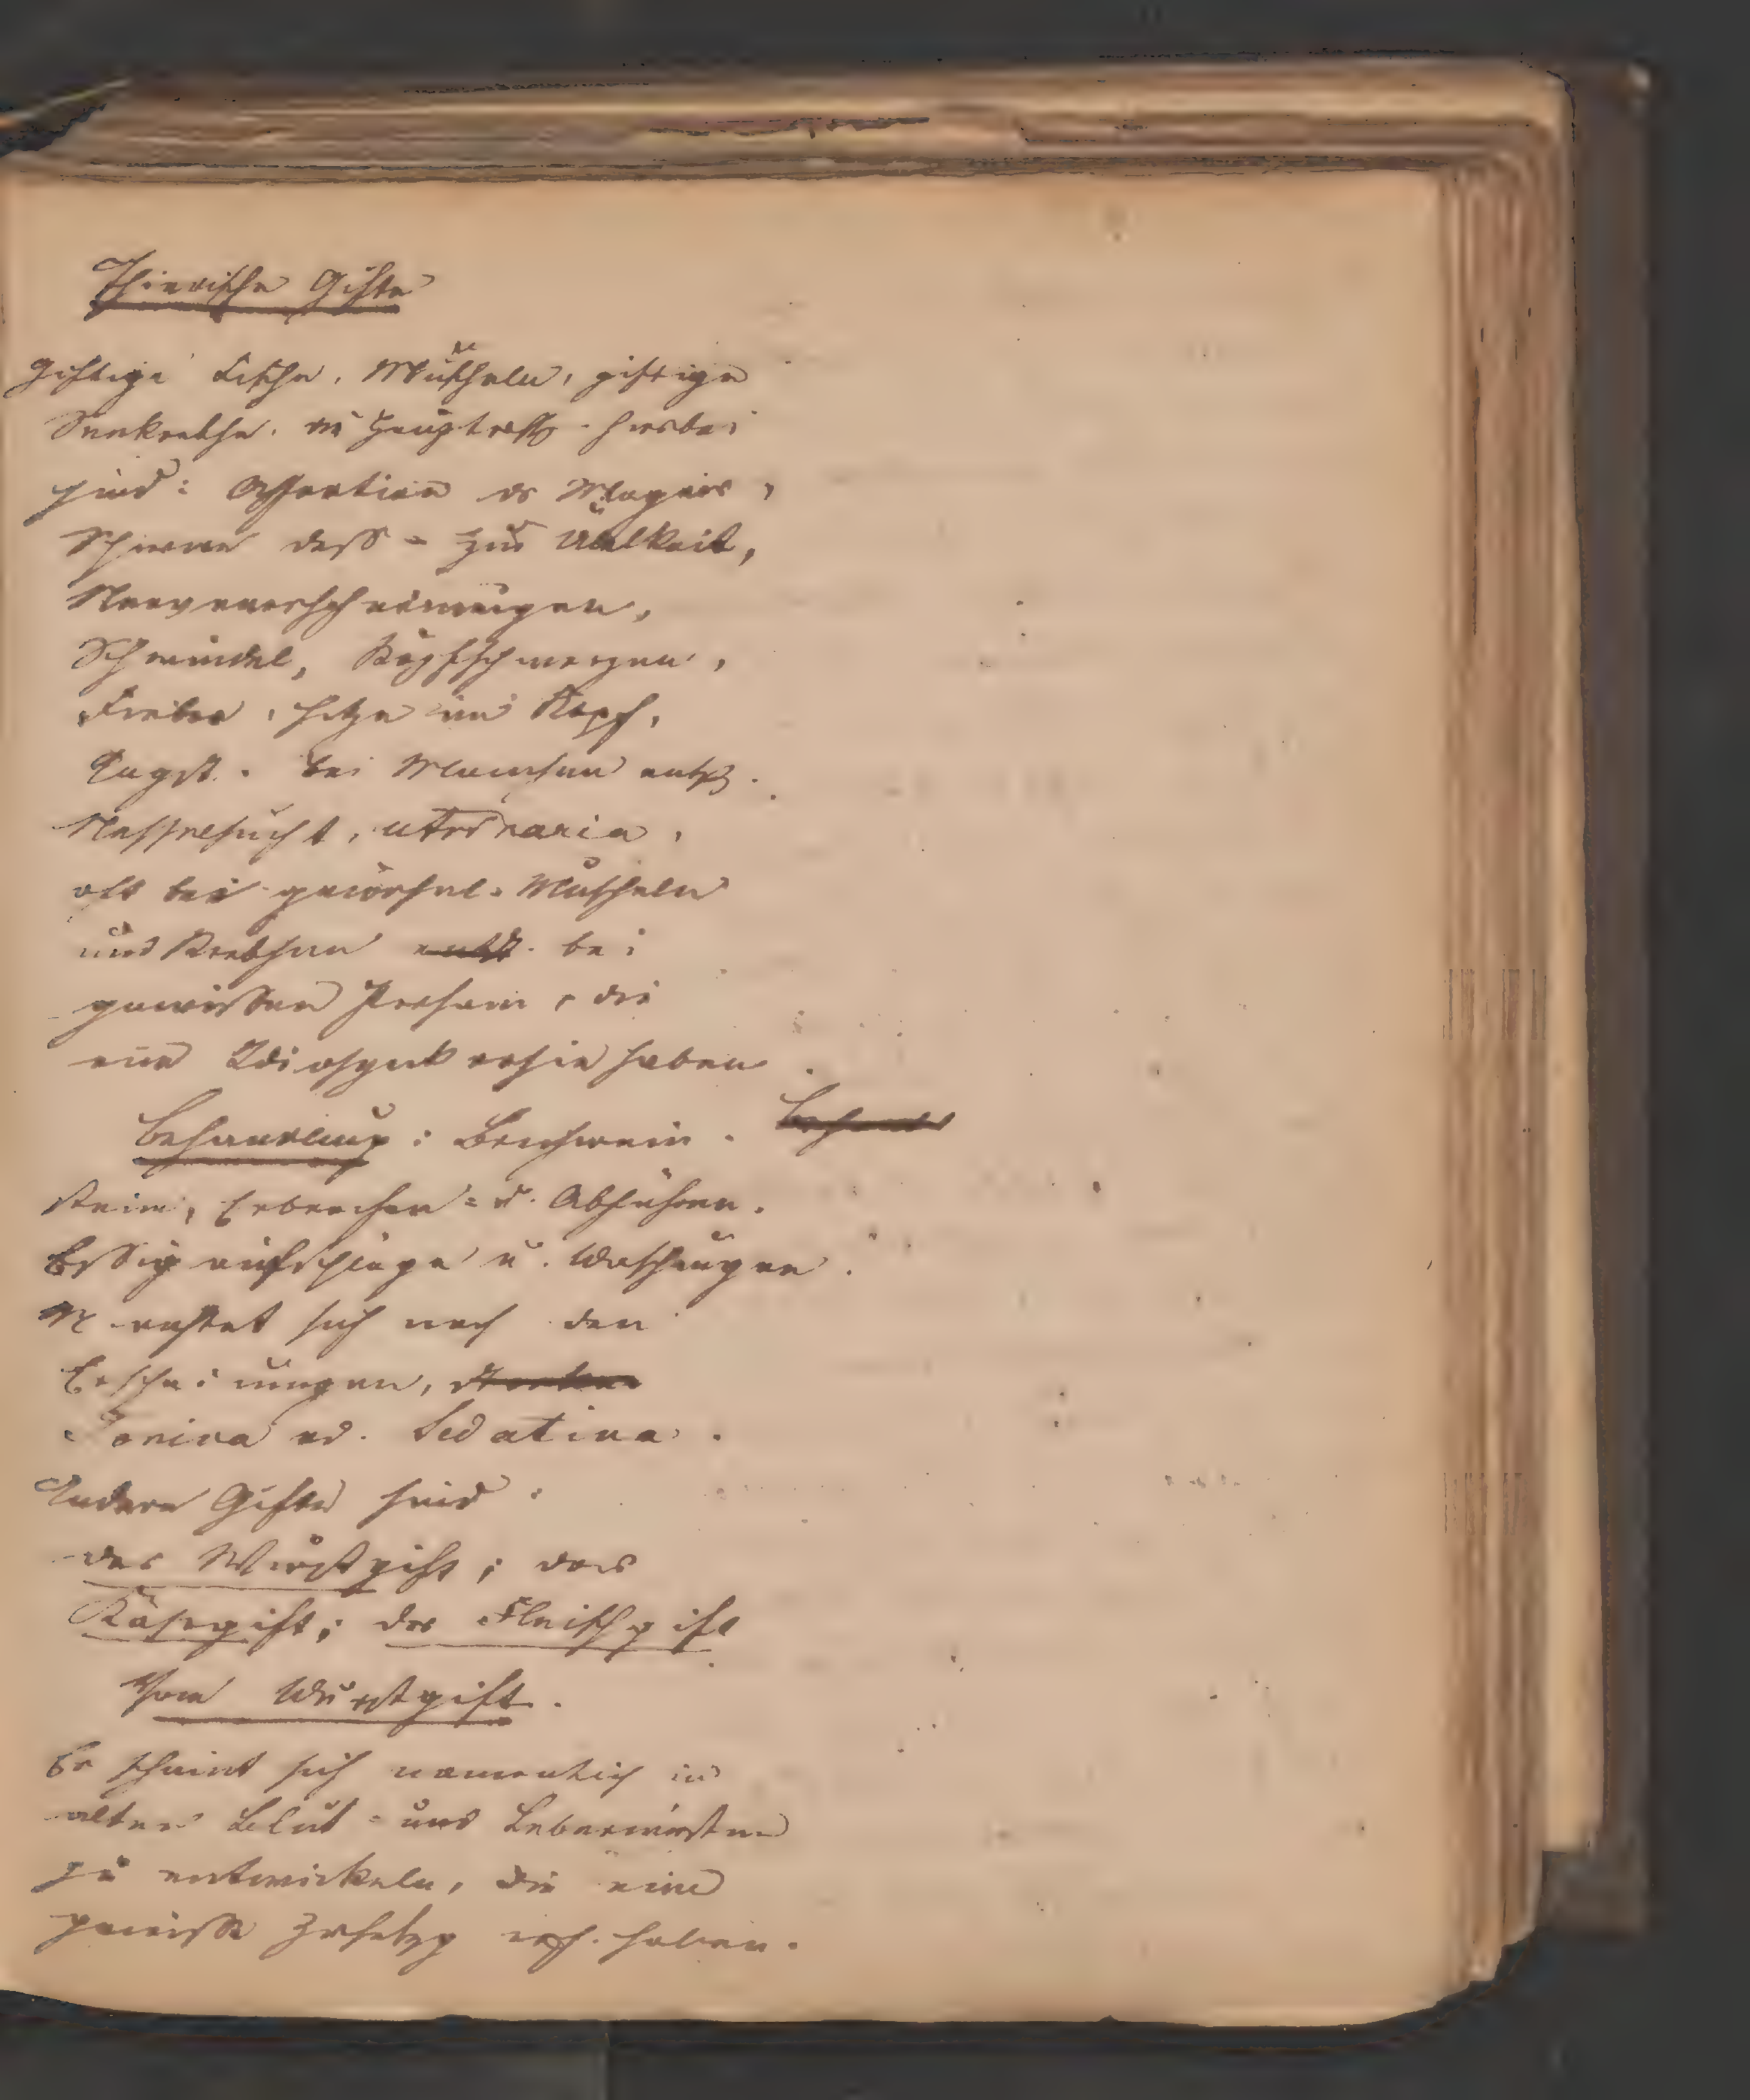 Thierische Gifte
Giftige Fische, Muscheln, giftige
Seekrebse. die hierbei
sind: Affection des Magens,
Schwere dess = zur Uebelkeit,
Nervenerscheinungen,
Schwindel, Kopfschmerzen,
Fieber, Hitze im Kopf,
Angst. bei Manchen entst.
Nesselsucht,
oft bei Muscheln
und Krebsen entst. bei
gewissen Person, die
eine Idiosynkrasie haben
Behandlung: Brechwein. Behandl
stein, Erbrechen = u. Abführen.
Essig u. Waschungen.
richtet sich nach den
Erscheinungen,
Tonica od. Sedativa.
Andere Gifte sind:
das Wurstgift; das
Käsegift; das Fleischgift
Vom Wurstgift.
Es scheint sich namentlich in
alten Blut = und Leberwürsten
zu entwickeln, die eine
gewisse Zersetzg haben.